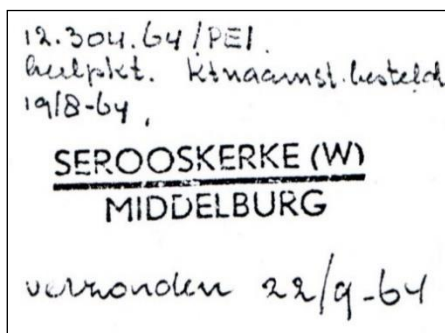 12.304.64/PEI.
hulpkt. Ktnaamst. besteld
19/8-64,
SEROOSKERKE (W)
MIDDELBURG
verzonden 22/9-64